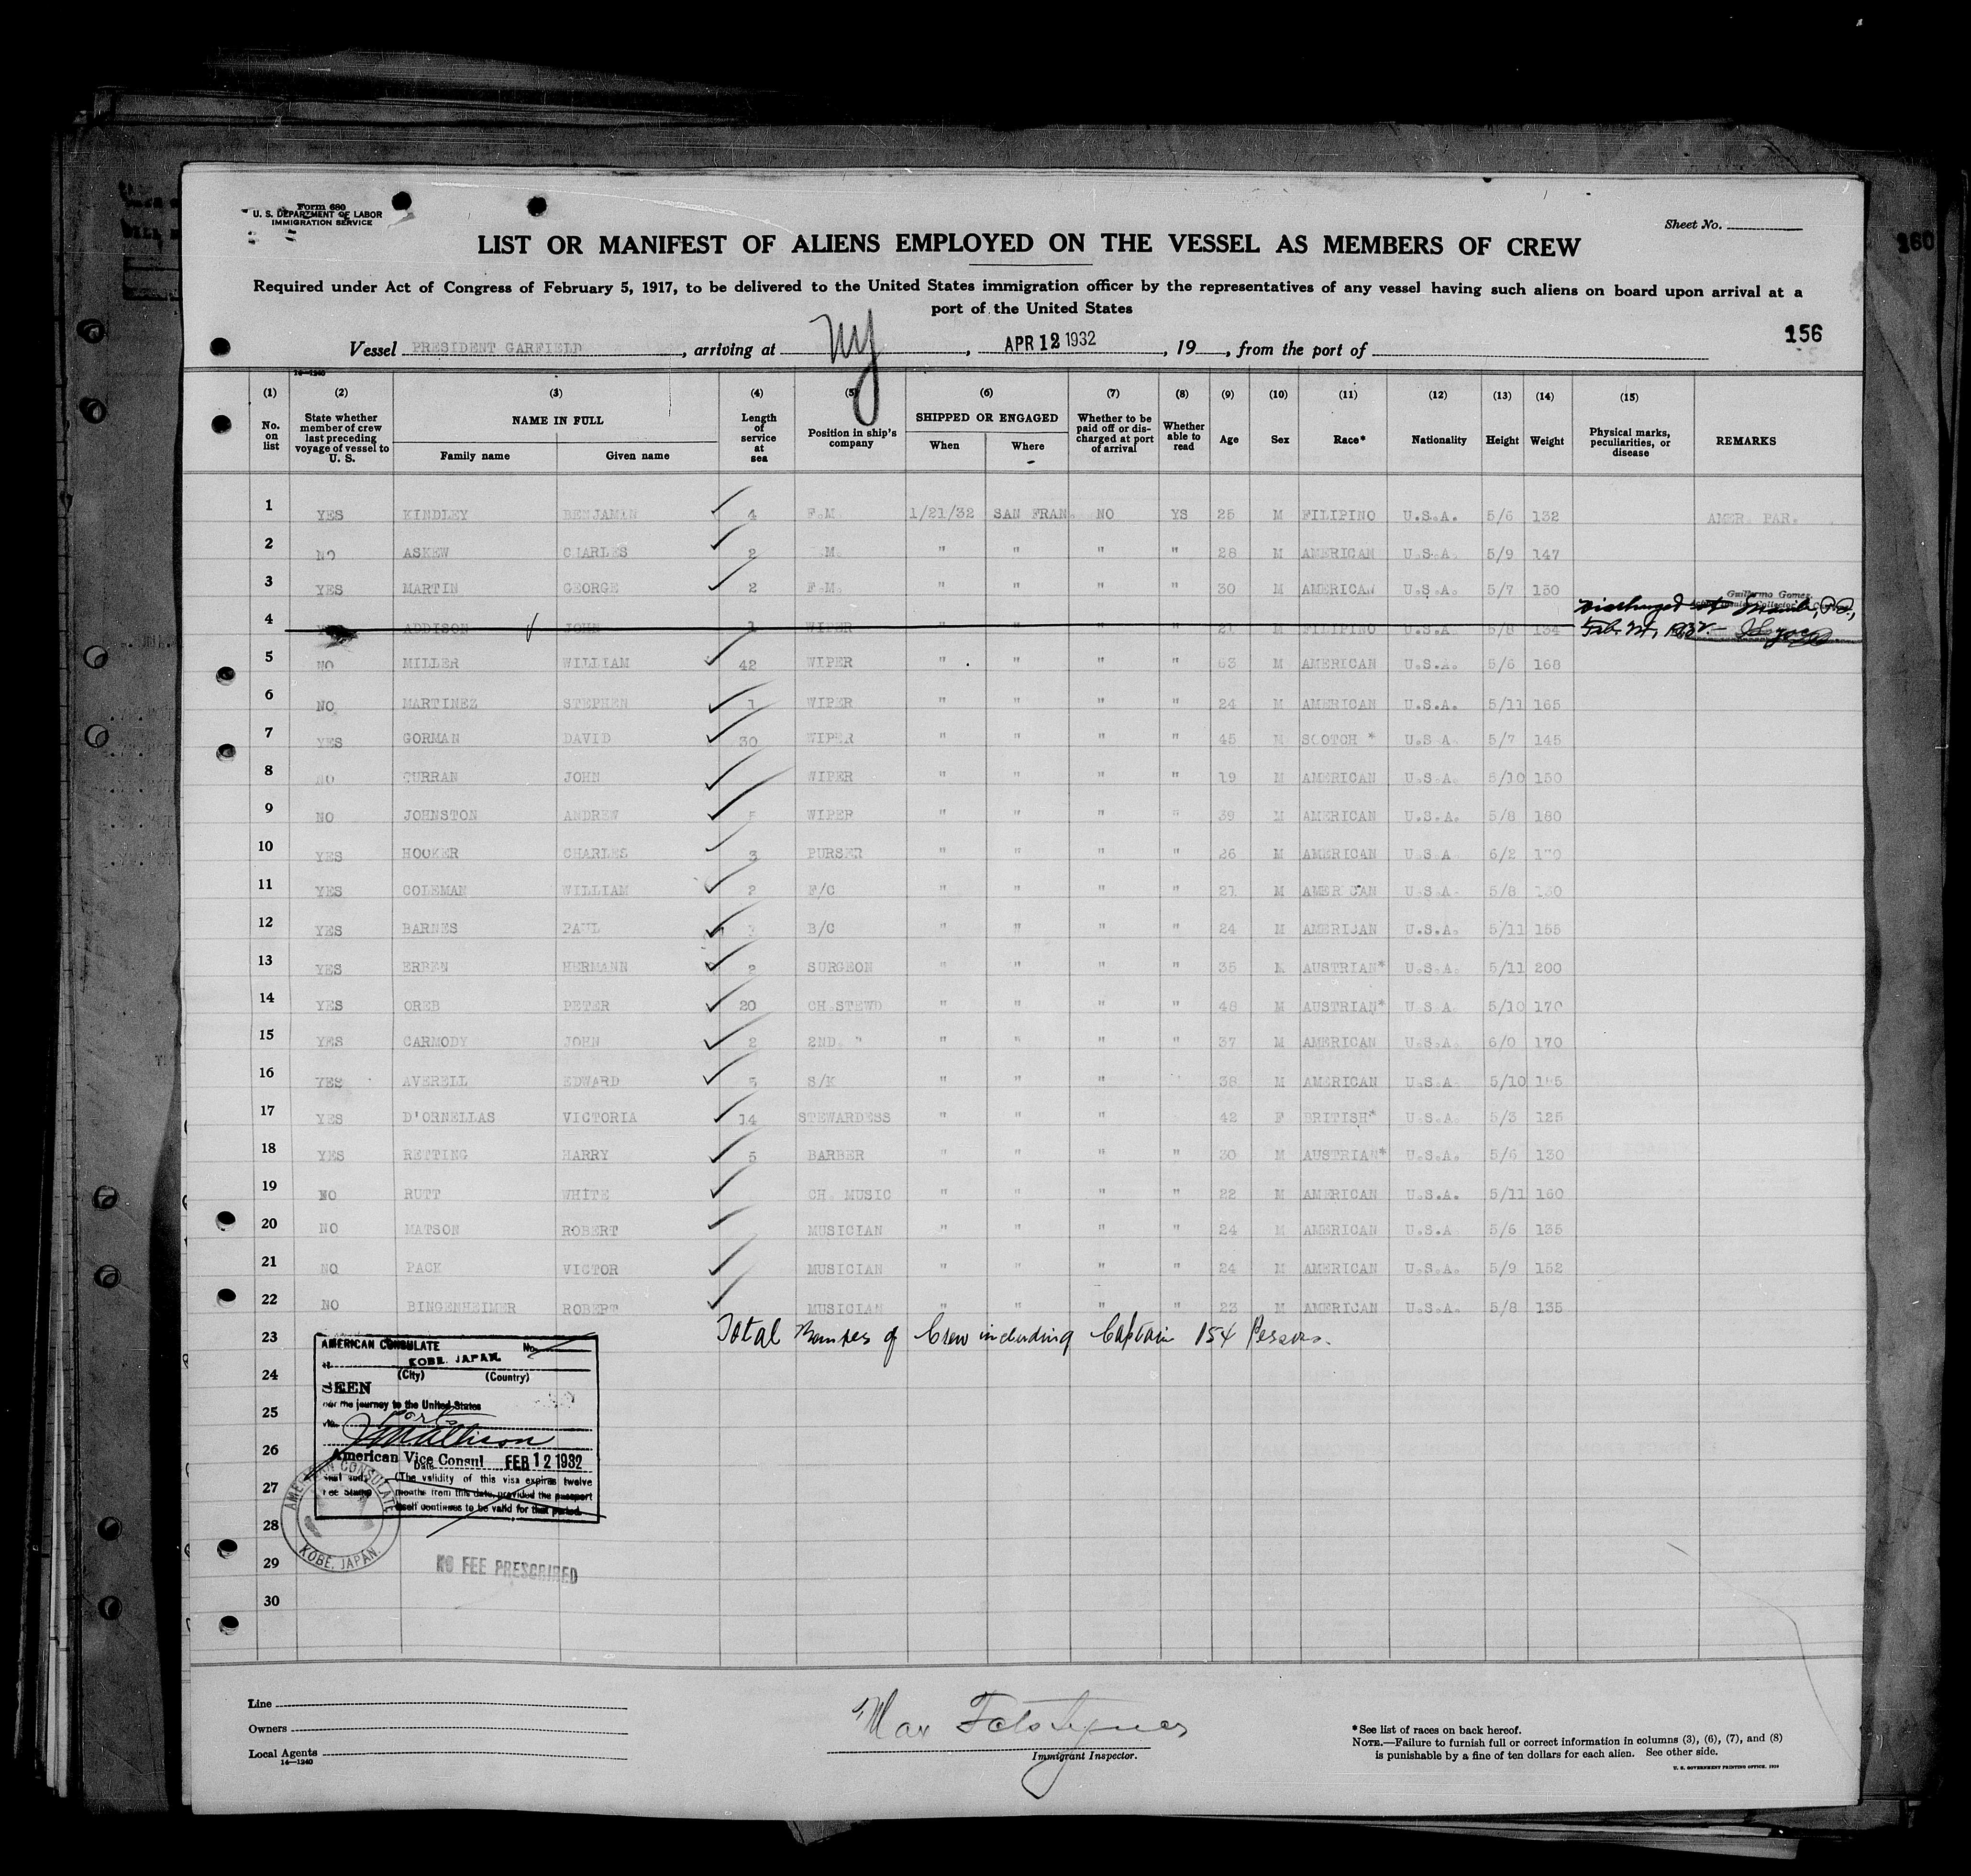 Form 680
U. S. DEPARTMENT OF LABOR
IMMIGRATION SERVICE
Sheet No.
LIST OR MANIFEST OF ALIENS EMPLOYED ON THE VESSEL AS MEMBERS OF CREW
Required under Act of Congress of February 5, 1917, to be delivered to the United States immigration officer by the representatives of any vessel having such aliens on board upon arrival at a
port of the United States
156
160
Vessel PRESIDENT GARFIELD, arriving at NY, APR 12 1932, 19 , from the port of
14—1240
(1) (2) (3) (4) (5) (6) (7) (8) (9) (10) (11) (12) (13) (14) (15)
No. on list State whether member of crew last preceding voyage of vessel to U. S. NAME IN FULL Family name Given name Length of service at sea Position in ship's company SHIPPED OR ENGAGED When Where Whether to be paid off or discharged at port of arrival Whether able to read Age Sex Race* Nationality Height Weight Physical marks, peculiarities, or disease REMARKS
1 YES KINDLEY BENJAMIN 4 F.M. 1/21/32 SAN FRAN. NO YS 25 M FILIPINO U.S.A. 5/6 132 AMER. PAR.
2 NO ASKEW CHARLES 2 .M. " " " " 28 M AMERICAN U.S.A. 5/9 147
3 YES MARTIN GEORGE 2 F.M. " " " " 30 M AMERICAN U.S.A. 5/7 150
Guillermo Gomez
4 ADDISON JOHN 1 WIPER " " " " 21 M FILIPINO U.S.A. 5/8 134 Discharged at Manila, P.I.,
Feb. 1932.
5 NO MILLER WILLIAM 42 WIPER " " " " 63 M AMERICAN U.S.A. 5/6 168
6 NO MARTINEZ STEPHEN 1 WIPER " " " " 24 M AMERICAN U.S.A. 5/11 165
7 YES GORMAN DAVID 30 WIPER " " " " 45 M SCOTCH * U.S.A. 5/7 145
8 NO CURRAN JOHN WIPER " " " " 19 M AMERICAN U.S.A. 5/10 150
9 NO JOHNSTON ANDREW 5 WIPER " " " " 39 M AMERICAN U.S.A. 5/8 180
10 YES HOOKER CHARLES 3 PURSER " " " " 26 M AMERICAN U.S.A. 6/2
11 YES COLEMAN WILLIAM 2 F/C " " " " 21 M AMERICAN U.S.A. 5/8
12 YES BARNES PAUL B/C " " " " 24 M AMERICAN U.S.A. 5/11 155
13 YES ERBEN HERMANN 2 SURGEON " " " " 35 M AUSTRIAN* U.S.A. 5/11 200
14 YES OREB PETER 20 CH.STEWD " " " " 48 M AUSTRIAN* U.S.A. 5/10 170
15 YES CARMODY JOHN 2 2ND. " " " " " 37 M AMERICAN U.S.A. 6/0 170
16 YES AVERELL EDWARD 5 S/K " " " 38 M AMERICAN U.S.A. 5/10
17 YES D'ORNELLAS VICTORIA 14 STEWARDESS " " " " 42 F BRITISH* U.S.A. 5/3 125
18 YES RETTING HARRY 5 BARBER " " " " 30 M AUSTRIAN* U.S.A. 5/6 130
19 NO RUTT WHITE CH. MUSIC " " " " 22 M AMERICAN U.S.A. 5/11 160
20 NO MATSON ROBERT MUSICIAN " " " " 24 M AMERICAN U.S.A. 5/6 135
21 NO PACK VICTOR MUSICIAN " " " " 24 M AMERICAN U.S.A. 5/9 152
22 NO BINGENHEIMER ROBERT MUSICIAN " " " " 23 M AMERICAN U.S.A. 5/8 135
23 Total Number of Crew including Captain 154 Persons.
24
25
26
27
28
29
30
AMERICAN CONSULATE No.
at KOBE, JAPAN.
(City) (Country)
SEEN
For the journey to the United States
Ports
American Vice Consul FEB 12 1932
Date
(The validity of this visa expires twelve
months from this date, provided the passport
itself continues to be valid for that period.
Fee Stamp
AMERICAN CONSULATE
KOBE, JAPAN.
NO FEE PRESCRIBED
Line
Owners
Local Agents
14—1240
Immigrant Inspector.
*See list of races on back hereof.
NOTE.—Failure to furnish full or correct information in columns (3), (6), (7), and (8)
is punishable by a fine of ten dollars for each alien. See other side.
U. S. GOVERNMENT PRINTING OFFICE.